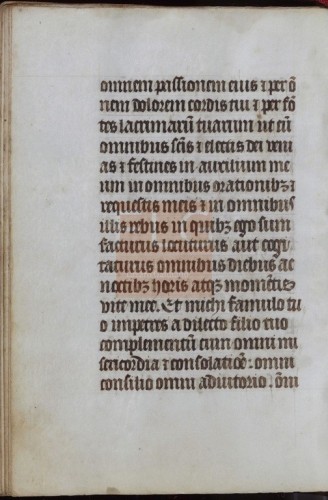 omnem passionem eius ⁊ per ō
nem dolorem cordis tui ⁊ per fō
tes lacrimarū tuarum ut cū
omnibus scīs ⁊ electis dei veni
as ⁊ festines in auxilium me
um in omnibus orationibꝫ ⁊
requestis meis ⁊ in omnibus
illis rebus in quibꝫ ego sum
facturus locuturus aut cogi
taturus omnibus diebus ac
noctibꝫ horis atqꝫ momētis
vite mee. Et michi famulo tu
o impetres a dilecto filio tuo
complementū cum omni mi
sericordia ⁊ consolatiōe. omni
consilio omni adiutorio. ōni